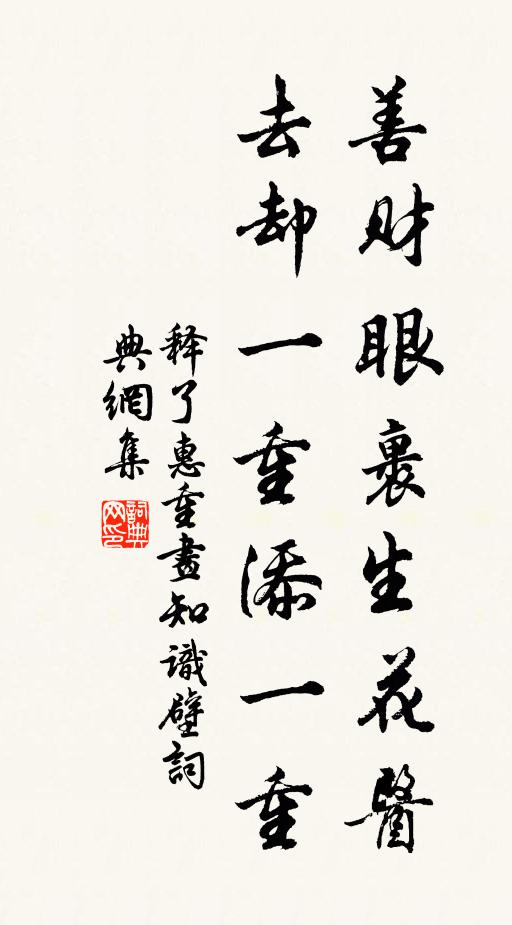 善財眼裹生花醫
去却一重添一重
释了惠重畫知識壁詞
典網集
詞典网印